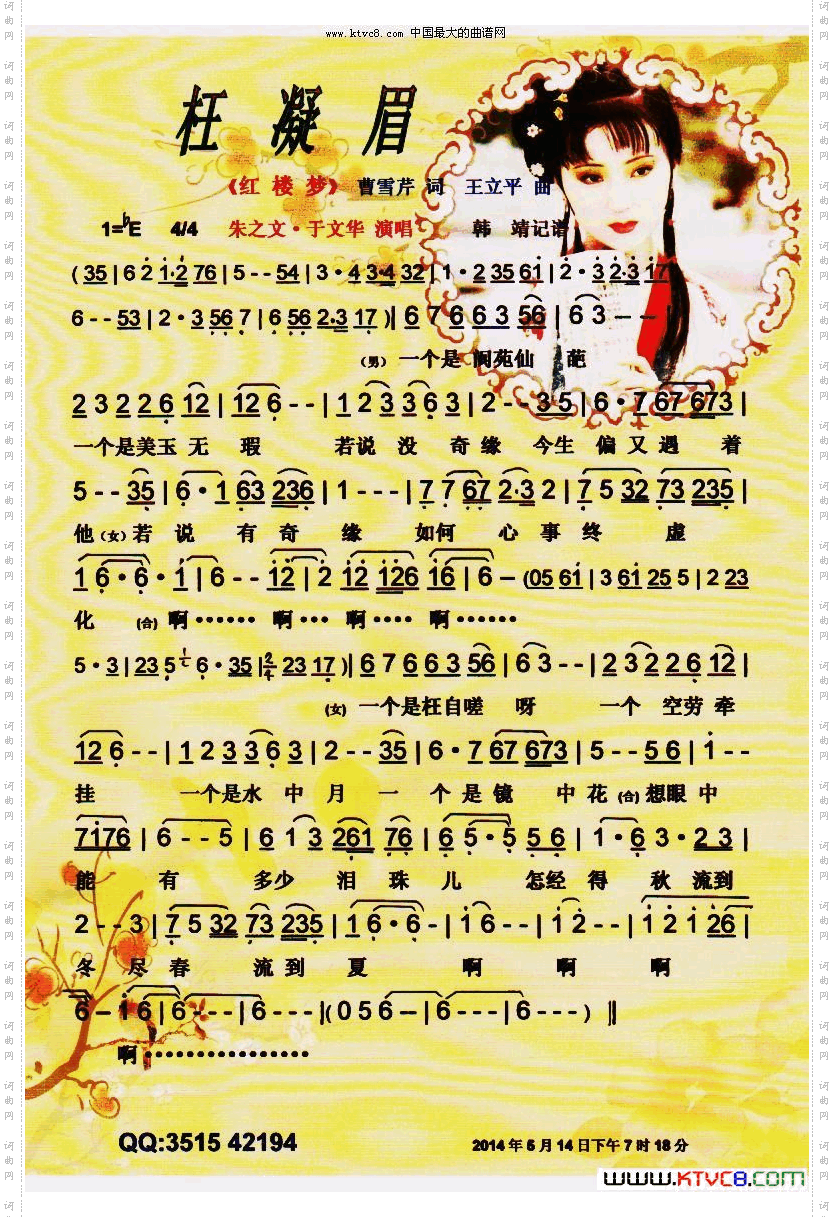 www.ktvc8.com 中国最大的曲谱网
枉凝眉
《红楼梦》 曹雪芹 词 王立平 曲
1=♭E 4/4 朱之文·于文华 演唱 韩 靖记谱
( 35 | 6 2 1·2 76 | 5 - - 54 | 3 · 4 3·4 32 | 1 · 2 35 61 | 2 · 3 2·3 17
6 - - 53 | 2 · 3 56 7 | 6 56 2·3 17 ) | 6 7 6 6 3 56 | 6 3 - - |
(男) 一个是 阆苑仙 葩
2 3 2 2 6 12 | 12 6 - - | 1 2 3 3 6 3 | 2 - - 3 5 | 6 · 7 67 673 |
一个是美玉 无 瑕 若说 没 奇缘 今生 偏 又 遇 着
5 - - 35 | 6 · 1 63 236 | 1 - - - | 7 7 67 2·3 2 | 7 5 32 73 235 |
他 (女) 若 说 有 奇 缘 如何 心 事 终 虚
1 6 · 6 · 1 | 6 - - 12 | 2 12 126 16 | 6 - (05 61 | 3 61 25 5 | 2 23
化 (合) 啊 •••••• 啊 ••• 啊 •••• 啊 ••••••
5 · 3 | 23 5 6 · 35 | 2/4 23 17 ) | 6 7 6 6 3 56 | 6 3 - - | 2 3 2 2 6 12 |
(女) 一个是枉自嗟 呀 一个 空劳 牵
12 6 - - | 1 2 3 3 6 3 | 2 - - 35 | 6 · 7 67 673 | 5 - - 5 6 | 1 - -
挂 一个是水 中 月 一 个 是 镜 中 花 (合) 想眼 中
7176 | 6 - - 5 | 6 1 3 261 76 | 6 5 · 5 5 6 | 1 · 6 3 · 2 3 |
能 有 多少 泪 珠 儿 怎经 得 秋 流到
2 - - 3 | 7 5 32 73 235 | 1 6 · 6 - | 1 6 - - | 1 2 - - | 1 2 1 26 |
冬 尽 春 流 到 夏 啊 啊 啊
6 - 1 6 | 6 - - - | 6 - - - | ( 0 5 6 - | 6 - - - | 6 - - - ) ‖
啊 ••••••••••••••••
QQ:3515 42194
2014 年 5 月 14 日下午 7 时 18 分
www.KTVC8.com
词曲网